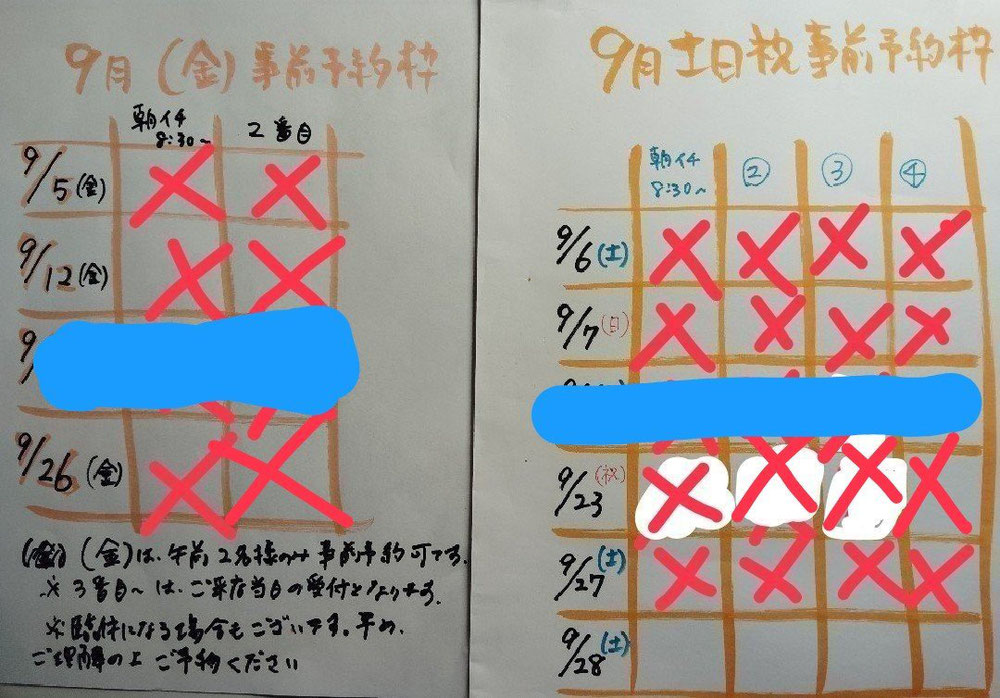 9月(金)事前予約枠
朝イチ
8:30~
2番目
9/5(金)
9/12(金)
9/
9/26(金)
(金)は、午前2名様のみ事前予約可です。
※3番目~は、ご来店当日の受付となります。
※臨休になる場合もございます。予め、
ご理解の上ご予約ください
9月土日祝事前予約枠
朝イチ
8:30~
②
③
④
9/6(土)
9/7(日)
9/23(祝)
9/27(土)
9/28(土)